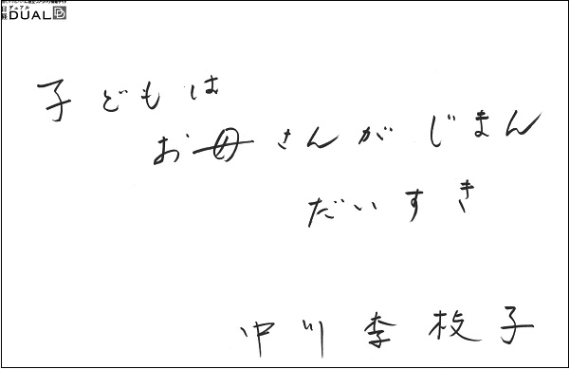 DUAL
子どもは
お母さんがじまん
だいすき
中川李枝子